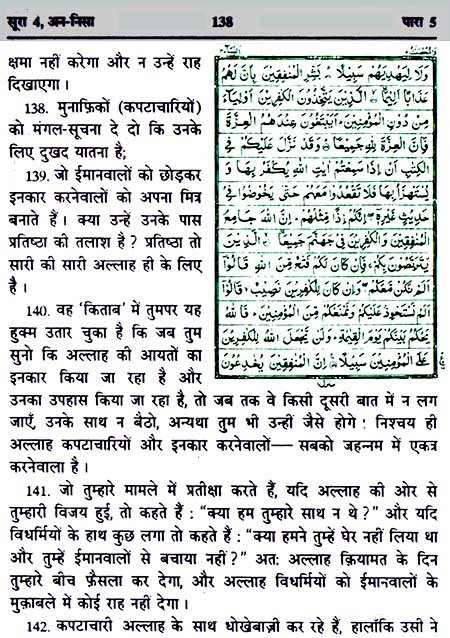 सूरा 4, अन-निसा 138 पारा 5
क्षमा नहीं करेगा और न उन्हें राह
दिखाएगा ।
138. मुनाफ़िकों (कपटाचारियों)
को मंगल-सूचना दे दो कि उनके
लिए दुखद यातना है;
139. जो ईमानवालों को छोड़कर
इनकार करनेवालों को अपना मित्र
बनाते हैं । क्या उन्हें उनके पास
प्रतिष्ठा की तलाश है ? प्रतिष्ठा तो
सारी की सारी अल्लाह ही के लिए
है ।
140. वह ‘किताब’ में तुमपर यह
हुक्म उतार चुका है कि जब तुम
सुनो कि अल्लाह की आयतों का
इनकार किया जा रहा है और
उनका उपहास किया जा रहा है, तो जब तक वे किसी दूसरी बात में न लग
जाएँ, उनके साथ न बैठो, अन्यथा तुम भी उन्हीं जैसे होगे ! निश्चय ही
अल्लाह कपटाचारियों और इनकार करनेवालों— सबको जहन्नम में एकत्र
करनेवाला है ।
141. जो तुम्हारे मामले में प्रतीक्षा करते हैं, यदि अल्लाह की ओर से
तुम्हारी विजय हुई, तो कहते हैं : “क्या हम तुम्हारे साथ न थे ?” और यदि
विधर्मियों के हाथ कुछ लगा तो कहते हैं : “क्या हमने तुम्हें घेर नहीं लिया था
और तुम्हें ईमानवालों से बचाया नहीं ?” अत: अल्लाह क़ियामत के दिन
तुम्हारे बीच फ़ैसला कर देगा, और अल्लाह विधर्मियों को ईमानवालों के
मुक़ाबले में कोई राह नहीं देगा ।
142. कपटाचारी अल्लाह के साथ धोखेबाज़ी कर रहे हैं, हालाँकि उसी ने
وَلَا لِيَهْدِيَهُمْ سَبِيلًا ۞ بَشِّرِ الْمُنٰفِقِينَ بِأَنَّ لَهُمْ
عَذَابًا أَلِيمًا ۞ الَّذِينَ يَتَّخِذُونَ الْكٰفِرِينَ أَوْلِيَآءَ
مِنْ دُونِ الْمُؤْمِنِينَ ۚ أَيَبْتَغُونَ عِنْدَهُمُ الْعِزَّةَ
فَإِنَّ الْعِزَّةَ لِلّٰهِ جَمِيعًا ۞ وَقَدْ نَزَّلَ عَلَيْكُمْ فِي
الْكِتٰبِ أَنْ إِذَا سَمِعْتُمْ اٰيٰتِ اللّٰهِ يُكْفَرُ بِهَا وَ
يُسْتَهْزَأُ بِهَا فَلَا تَقْعُدُوا مَعَهُمْ حَتّٰى يَخُوضُوا فِي
حَدِيثٍ غَيْرِهٖ ۖ إِنَّكُمْ إِذًا مِّثْلُهُمْ ۗ إِنَّ اللّٰهَ جَامِعُ
الْمُنٰفِقِينَ وَالْكٰفِرِينَ فِي جَهَنَّمَ جَمِيعًا ۞ الَّذِينَ
يَتَرَبَّصُونَ بِكُمْ ۚ فَإِنْ كَانَ لَكُمْ فَتْحٌ مِّنَ اللّٰهِ قَالُوا
أَلَمْ نَكُنْ مَّعَكُمْ ۖ وَإِنْ كَانَ لِلْكٰفِرِينَ نَصِيبٌ ۙ قَالُوا
أَلَمْ نَسْتَحْوِذْ عَلَيْكُمْ وَنَمْنَعْكُمْ مِّنَ الْمُؤْمِنِينَ ۚ فَاللّٰهُ
يَحْكُمُ بَيْنَكُمْ يَوْمَ الْقِيٰمَةِ ۗ وَلَنْ يَّجْعَلَ اللّٰهُ لِلْكٰفِرِينَ
عَلَى الْمُؤْمِنِينَ سَبِيلًا ۞ إِنَّ الْمُنٰفِقِينَ يُخٰدِعُونَ